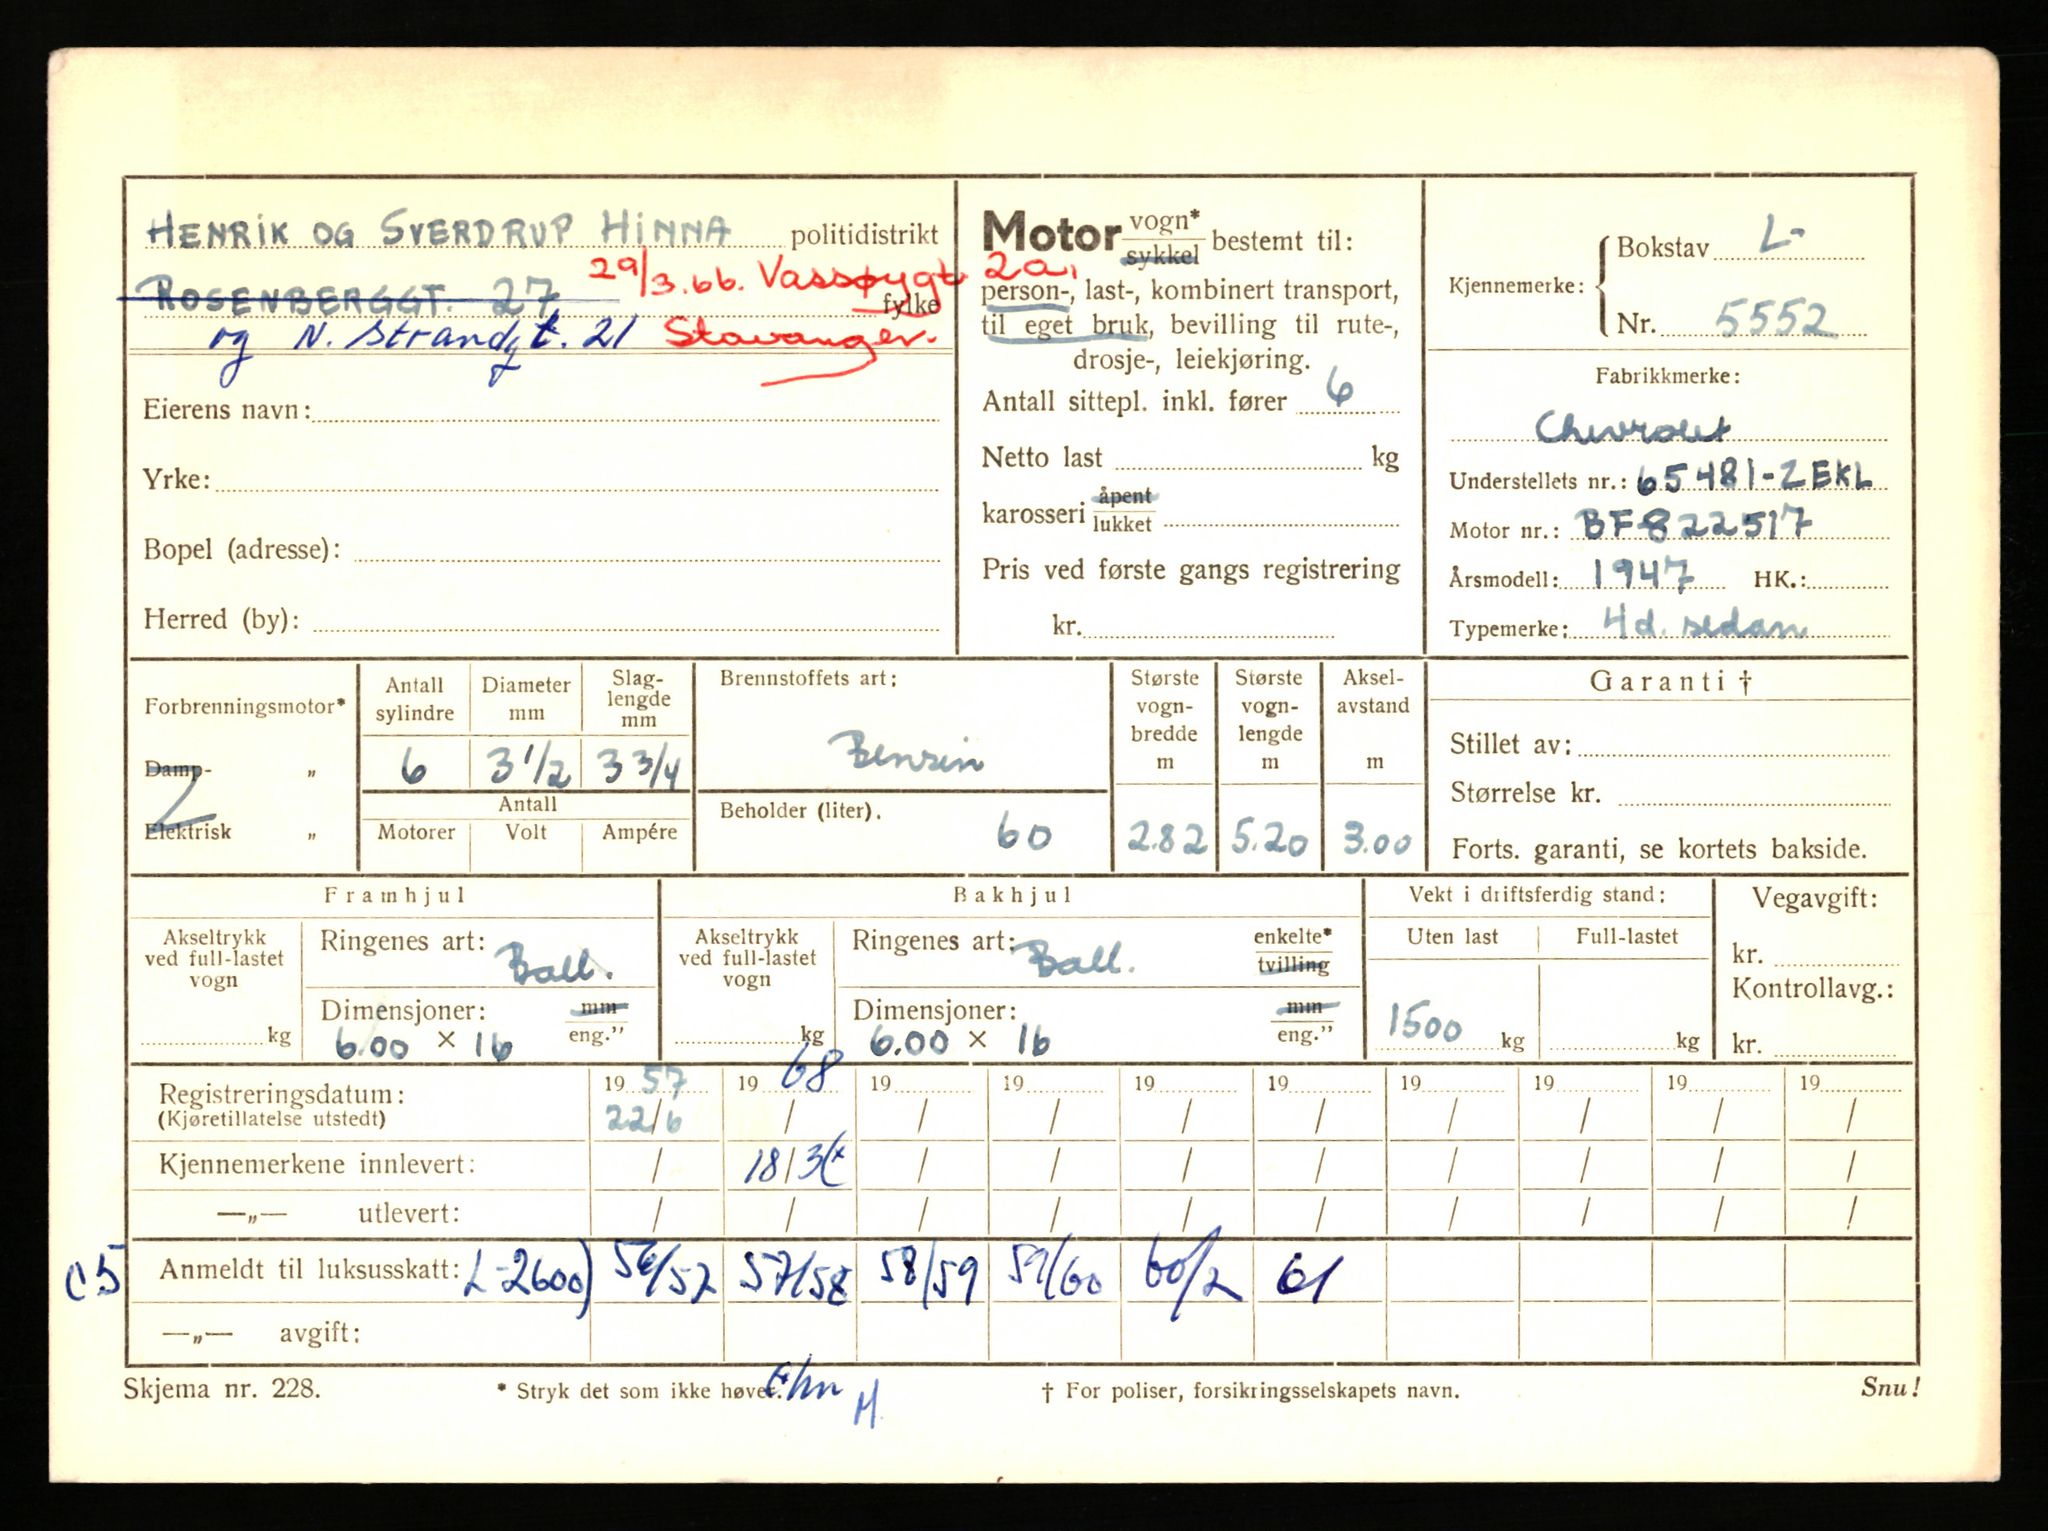 HENRIK OG SVERDRUP HINNA politidistrikt
ROSENBERGGT. 27 29/3.66. Vassøygt 2a, fylke
og N. Strandgt. 21 Stavanger.
Eierens navn:
Yrke:
Bopel (adresse):
Herred (by):
Motor vogn* / sykkel bestemt til:
person-, last-, kombinert transport,
til eget bruk, bevilling til rute-,
drosje-, leiekjøring.
Antall sittepl. inkl. fører 6
Netto last kg
karosseri åpent / lukket
Pris ved første gangs registrering
kr.
Kjennemerke: Bokstav L-
Nr. 5552
Fabrikkmerke:
Chevrolet
Understellets nr.: 65481-ZEKL
Motor nr.: BF822517
Årsmodell: 1947 HK.:
Typemerke: 4d. sedan
Forbrenningsmotor*
Damp- "
Elektrisk "
Antall sylindre Diameter mm Slag-lengde mm
6 3 1/2 3 3/4
Antall
Motorer Volt Ampére
Brennstoffets art:
Bensin
Beholder (liter).
60
Største vogn-bredde m
2.82
Største vogn-lengde m
5.20
Aksel-avstand m
3.00
Garanti †
Stillet av:
Størrelse kr.
Forts. garanti, se kortets bakside.
Framhjul
Akseltrykk ved full-lastet vogn
kg
Ringenes art: Ball.
Dimensjoner: mm / eng."
6.00 × 16
Bakhjul
Akseltrykk ved full-lastet vogn
kg
Ringenes art: Ball. enkelte* / tvilling
Dimensjoner: mm / eng."
6.00 × 16
Vekt i driftsferdig stand:
Uten last Full-lastet
1500 kg kg
Vegavgift:
kr.
Kontrollavg.:
kr.
Registreringsdatum: 1957 1968 19 19 19 19 19 19 19 19
(Kjøretillatelse utstedt) 22/6 / / / / / / / / /
Kjennemerkene innlevert: / 18/3 / / / / / / / /
—„— utlevert: / / / / / / / / / /
Anmeldt til luksusskatt: L-2600) 56/57 57/58 58/59 59/60 60/2 61
—„— avgift:
Skjema nr. 228. * Stryk det som ikke høver. † For poliser, forsikringsselskapets navn. Snu!
H